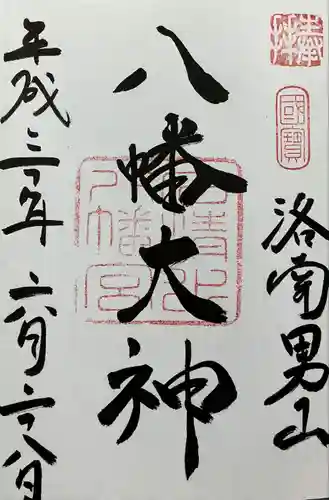 奉拝
國寶
洛南男山
八幡大神
石清水八幡宮
平成三十年六月二八日